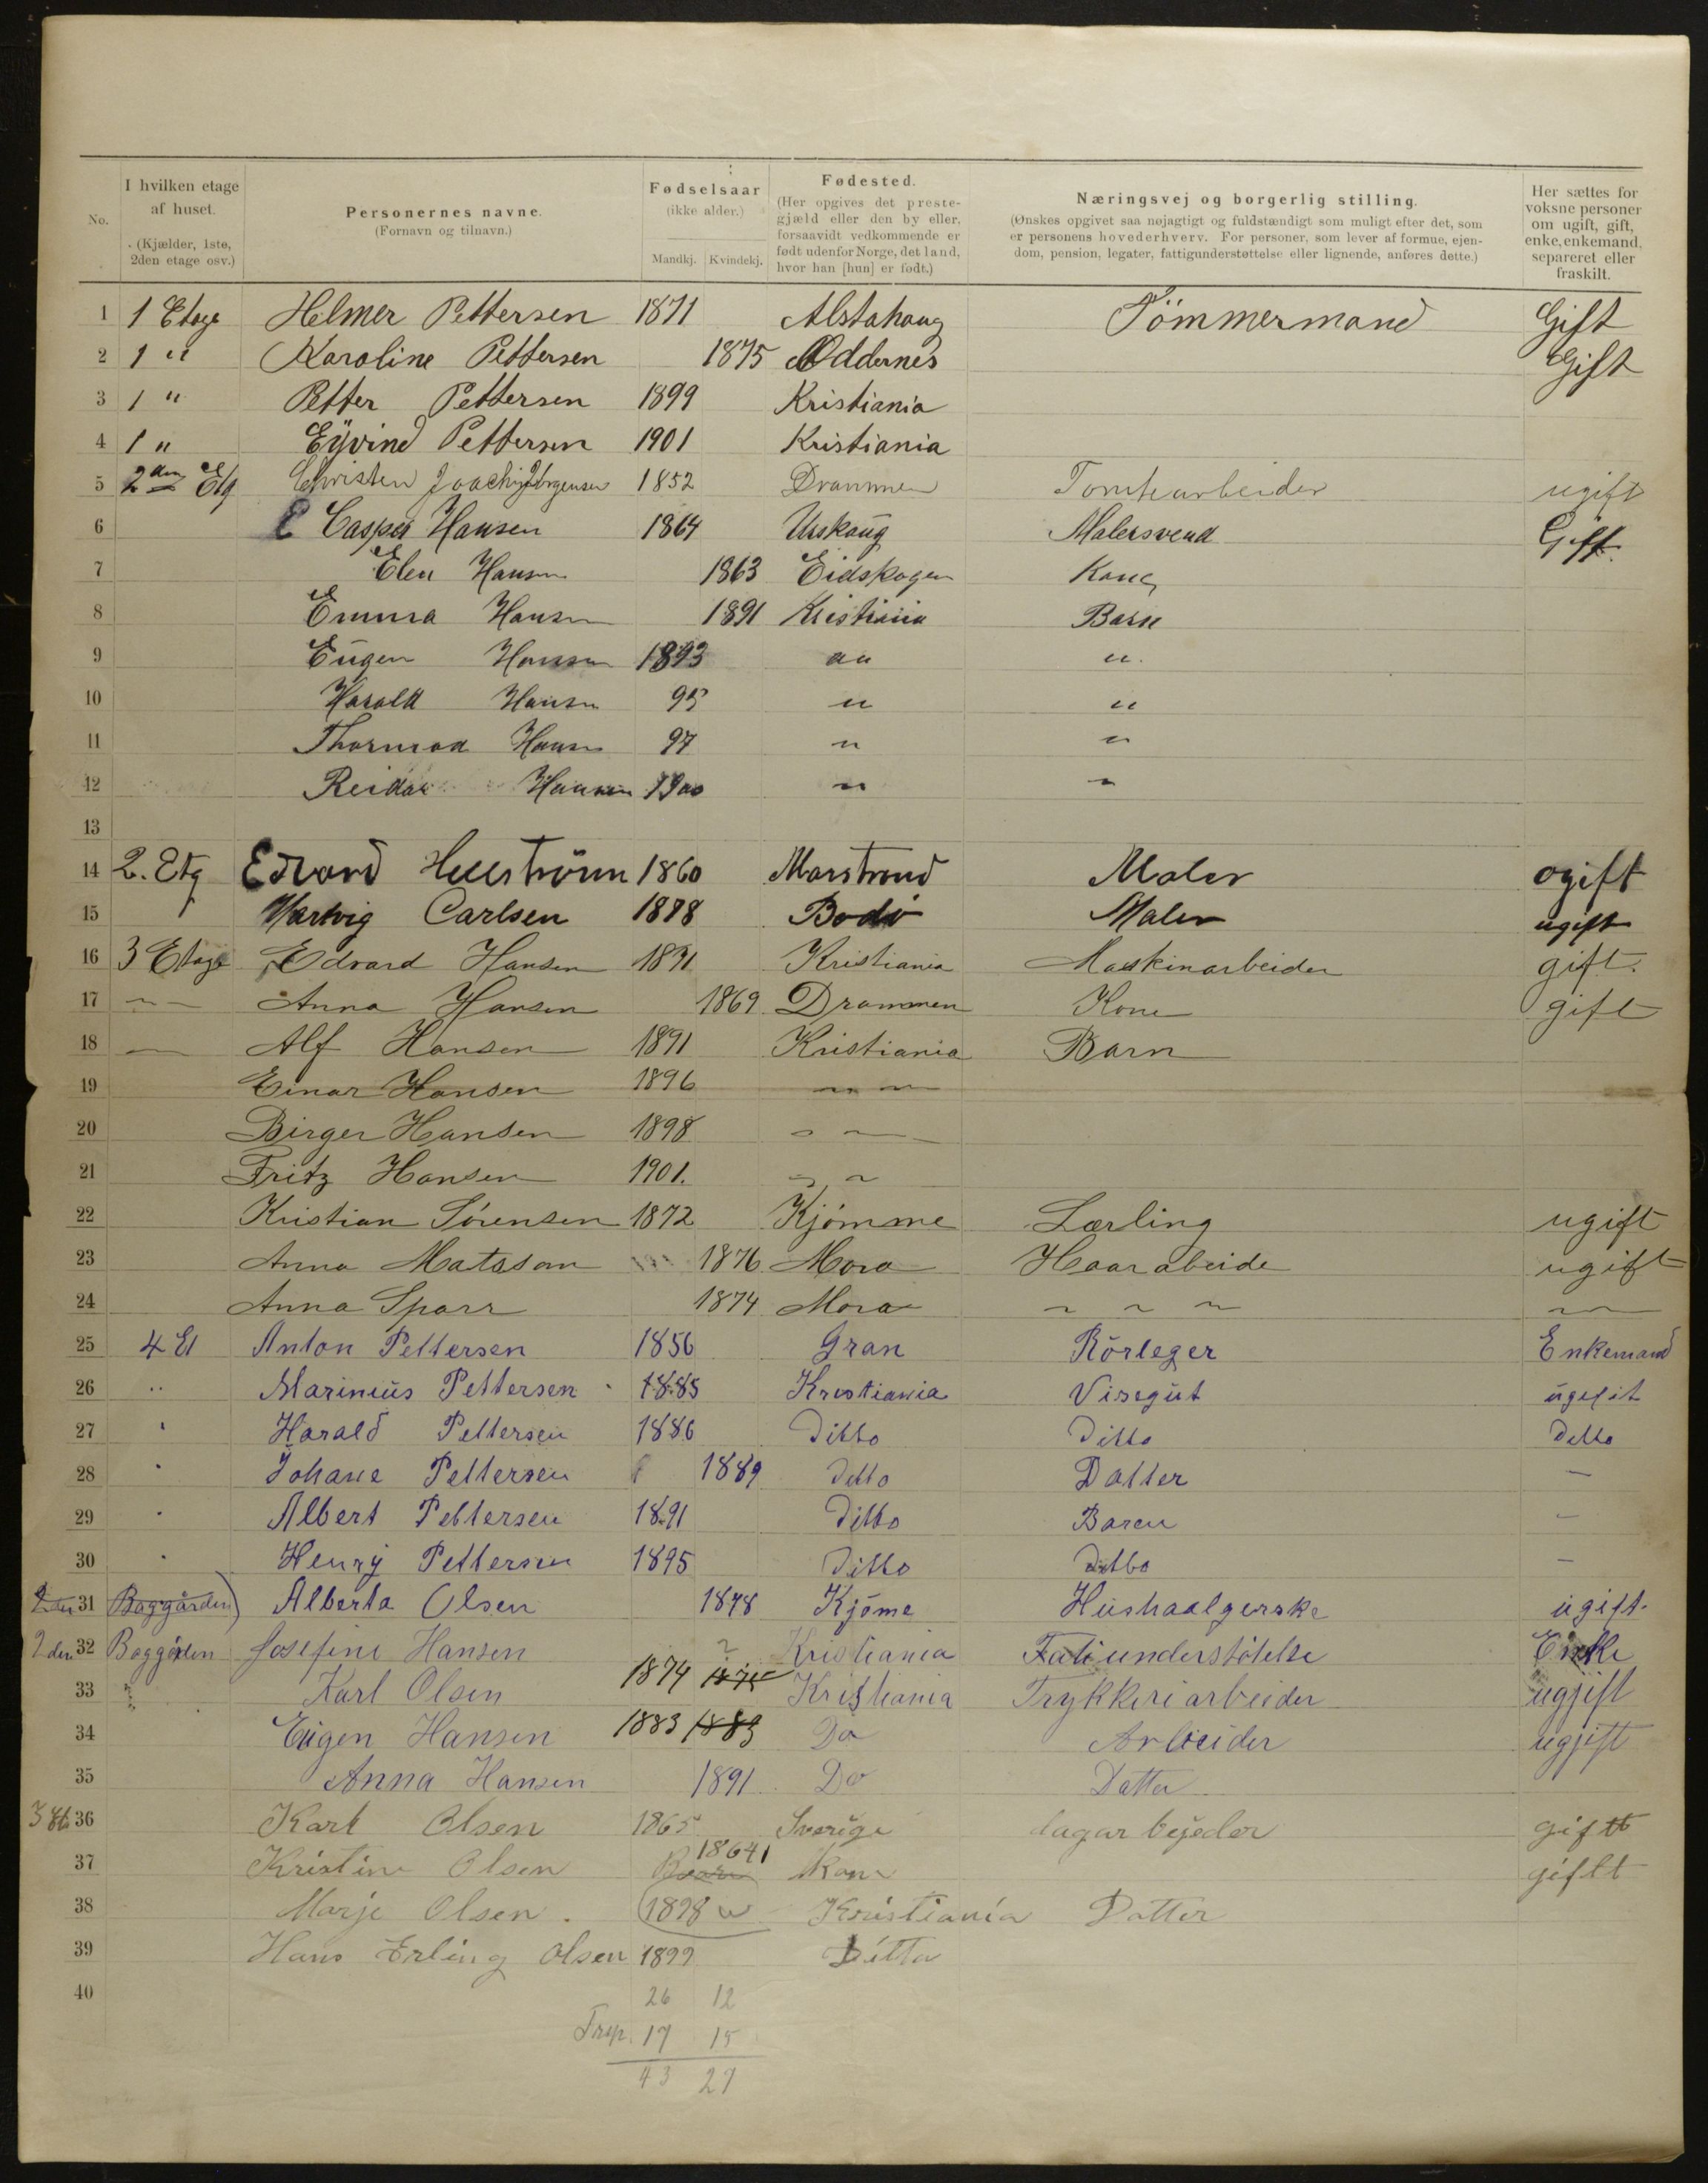 No.
I hvilken etage af huset. (Kjælder, 1ste, 2den etage osv.)
Personernes navne. (Fornavn og tilnavn.)
Fødselsaar (ikke alder.) Mandkj. Kvindekj.
Fødested. (Her opgives det prestegjæld eller den by eller, forsaavidt vedkommende er født udenfor Norge, det land, hvor han [hun] er født.)
Næringsvej og borgerlig stilling. (Ønskes opgivet saa nøjagtigt og fuldstændigt som muligt efter det, som er personens hovederhverv. For personer, som lever af formue, ejendom, pension, legater, fattigunderstøttelse eller lignende, anføres dette.)
Her sættes for voksne personer om ugift, gift, enke, enkemand, separeret eller fraskilt.
1 1 Etage Helmer Pettersen 1871 Alstahaug Tömmermand Gift
2 1 " Karoline Pettersen 1875 Oddernes Gift
3 1 " Petter Pettersen 1899 Kristiania
4 1 " Eÿvind Pettersen 1901 Kristiania
5 2den Etg Christen Joachim Jørgensen 1852 Drammen Tomtearbeider ugift
6 Casper Hansen 1864 Urskoug Malersvend Gift.
7 Elen Hansen 1863 Eidskogen Kone
8 Emma Hansen 1891 Kristiania Barn
9 Eugen Hansen 1893 " "
10 Harald Hansen 95 " "
11 Thormod Hansen 97 " "
12 Reidar Hansen 1900 " "
13
14 2. Etg Edvard Hellström 1860 Marstrand Maler ogift
15 " Hartvig Carlsen 1878 Bodö Maler ugift
16 3 Etage Edvard Hansen 1871 Kristiania Maskinarbeider gift.
17 " Anna Hansen 1869 Drammen Kone gift
18 " Alf Hansen 1891 Kristiania Barn
19 Einar Hansen 1896 " "
20 Birger Hansen 1898 " "
21 Fritz Hansen 1901. " "
22 Kristian Sörensen 1872 Kjömme Lærling ugift
23 Anna Matsson 1876 Mora Haarabeide ugift
24 Anna Sparr 1874 Mora " " " "
25 4 Et Anton Pettersen 1856 Gran Rörleger Enkemand
26 " Marinius Pettersen 1885 Kristiania Visegut ugefit
27 " Harald Pettersen 1886 Ditto Ditto Ditto
28 " Johane Pettersen 1889 Ditto Datter —
29 " Albert Pettersen 1891 Ditto Baren —
30 " Henrÿ Pettersen 1895 Ditto Ditto —
2den 31 Baggården) Alberta Olsen 1878 Kjöme Hüshaalgerske ugift.
2den 32 Baggården Josefine Hansen Kristiania Fatiunderstötelse Enke
33 " Karl Olsen 1874 1875 Kristiania Trykkeriarbeider ugjift
34 Eugen Hansen 1883 1883 Do Arbeider ugjift
35 Anna Hansen 1891 Do Datter
3 Et. 36 Karl Olsen 1865 Sverige lagarbejeder gift
37 Kristine Olsen 1864 Kone giftt
38 Marje Olsen. 1898 Kristiania Datter
39 Hans Erling Olsen 1899 Ditto
40
26 12
Trsp. 17 15
43 27